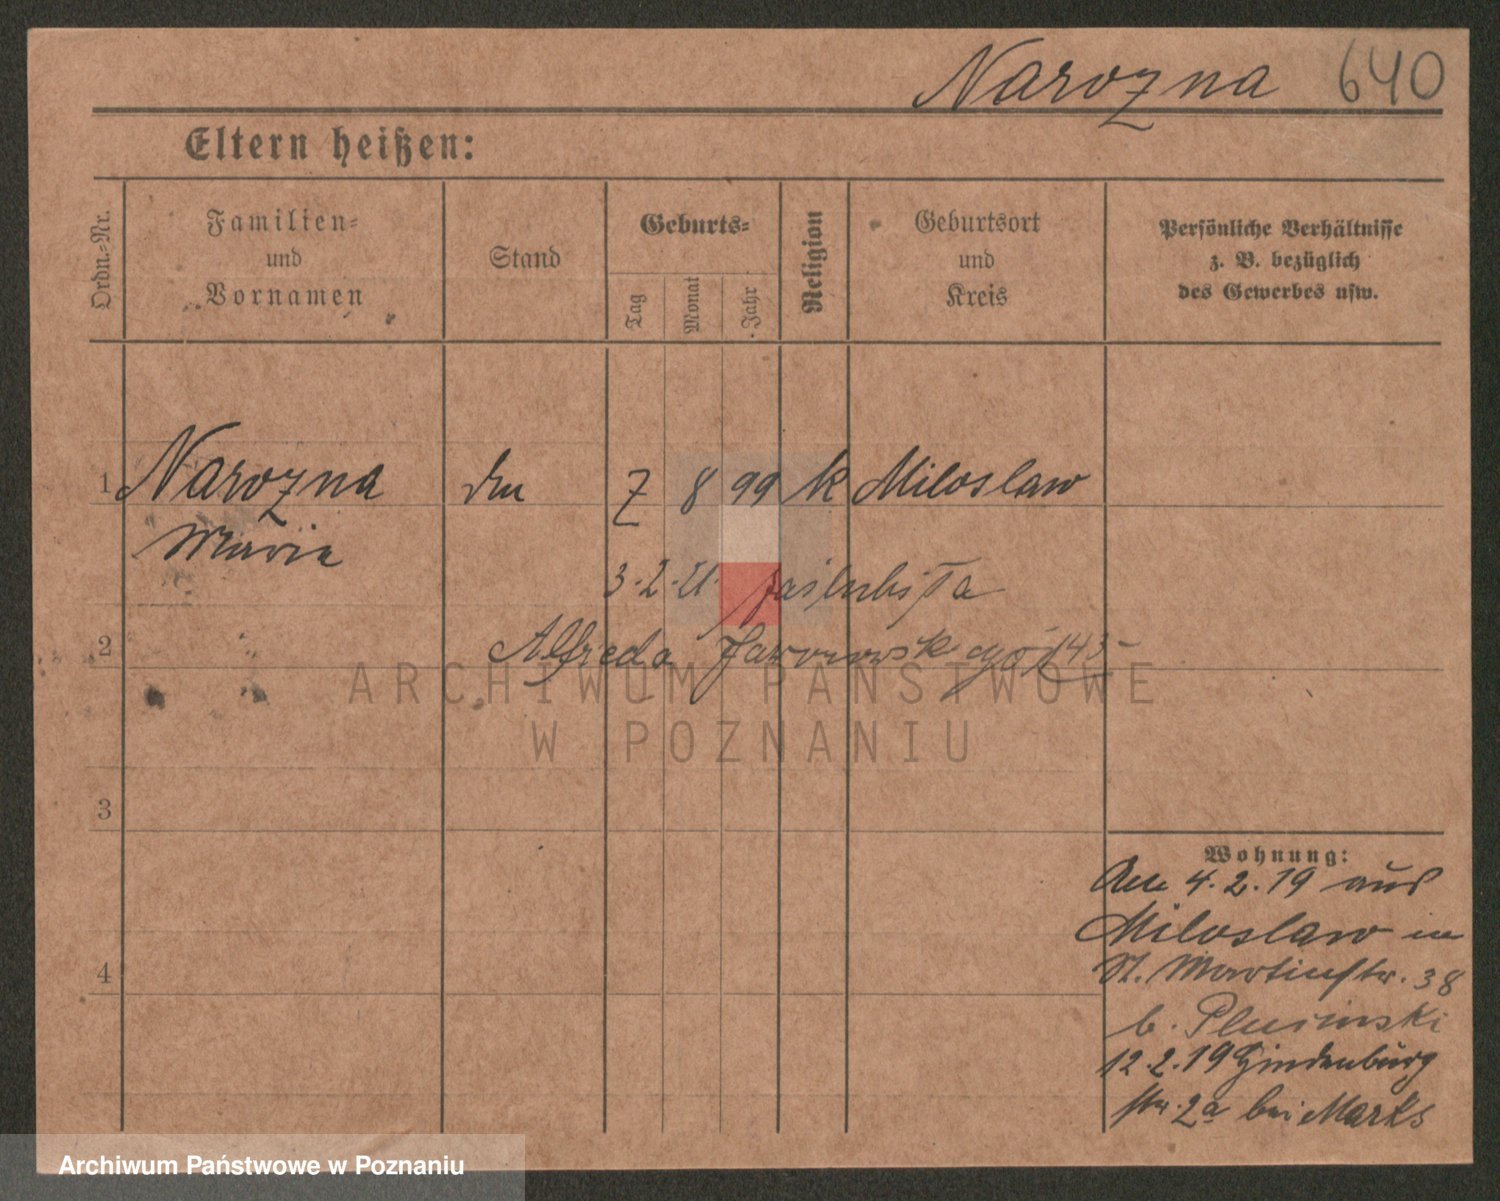 Narozna 640
Eltern heißen:
Ordn.-Nr.
Familien-
und
Vornamen
Stand
Geburts-
Tag
Monat
Jahr
Religion
Geburtsort
und
Kreis
Persönliche Verhältnisse
z. B. bezüglich
des Gewerbes usw.
1 Narozna 7 8 99 k Miloslaw
Maria
3.2.21.
2 Alfreda
3
4
Wohnung:
Am 4.2.19 aus
Miloslaw in
St. Martinstr. 38
b. Plusinski
12.2.19 Hindenburg
str. 2a bei Marks
ARCHIWUM PAŃSTWOWE
W POZNANIU
Archiwum Państwowe w Poznaniu